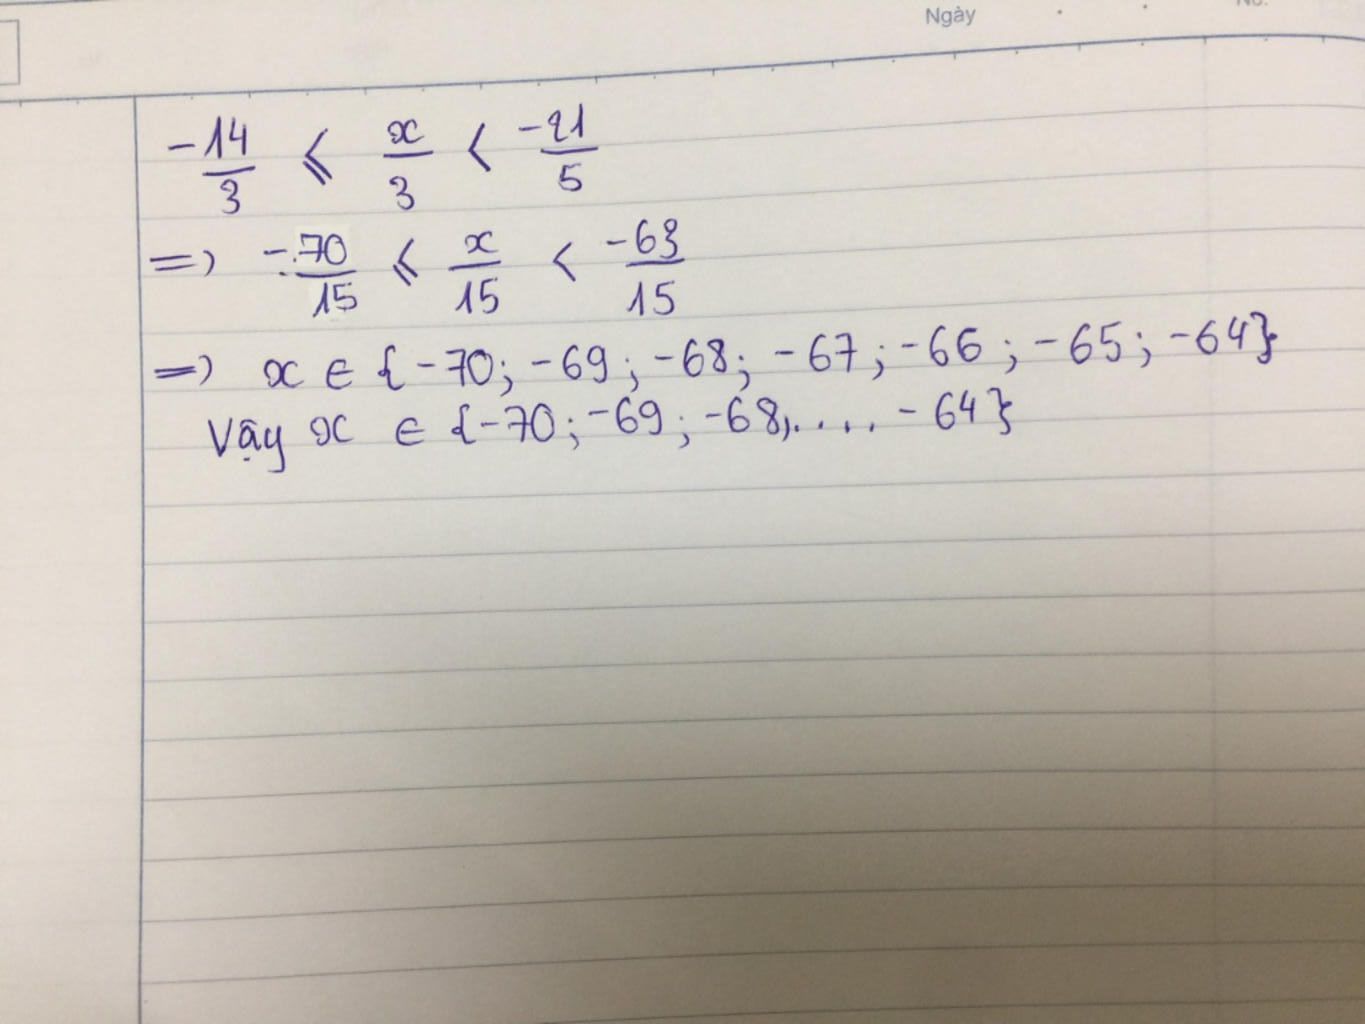 Ngày
No.
-14/3 ⩽ x/3 < -21/5
=> -70/15 ⩽ x/15 < -63/15
=> x ∈ {-70; -69; -68; -67; -66; -65; -64}
Vậy x ∈ {-70; -69; -68,.... -64}